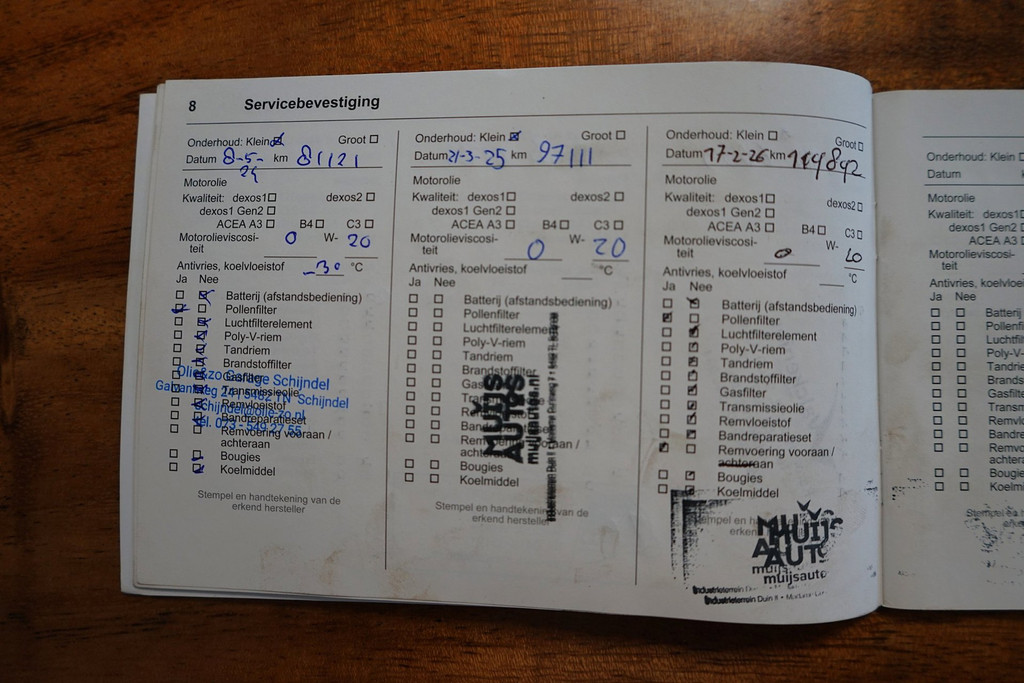 8 Servicebevestiging
Onderhoud: Klein Groot
Datum 8-5-24 km 81121
Motorolie
Kwaliteit: dexos1 dexos2
dexos1 Gen2
ACEA A3 B4 C3
Motorolieviscosi- 0 W- 20
teit
Antivries, koelvloeistof -30 °C
Ja Nee
Batterij (afstandsbediening)
Pollenfilter
Luchtfilterelement
Poly-V-riem
Tandriem
Brandstoffilter
Gasfilter
Transmissieolie
Remvloeistof
Bandreparatieset
Remvoering vooraan /
achteraan
Bougies
Koelmiddel
Olie&zo Garage Schijndel
Schijndel
schijndel@olie-zo.nl
tel. 073 - 549 27 55
Stempel en handtekening van de
erkend hersteller
Onderhoud: Klein Groot
Datum 21-3-25 km 97111
Motorolie
Kwaliteit: dexos1 dexos2
dexos1 Gen2
ACEA A3 B4 C3
Motorolieviscosi- 0 W- 20
teit
Antivries, koelvloeistof °C
Ja Nee
Batterij (afstandsbediening)
Pollenfilter
Luchtfilterelement
Poly-V-riem
Tandriem
Brandstoffilter
Bougies
Koelmiddel
MUIJS
AUTOS
muijsautos.nl
Stempel en handtekening van de
erkend hersteller
Onderhoud: Klein Groot
Datum 17-2-26 km 114892
Motorolie
Kwaliteit: dexos1 dexos2
dexos1 Gen2
ACEA A3 B4 C3
Motorolieviscosi- 0 W- 20
teit
Antivries, koelvloeistof °C
Ja Nee
Batterij (afstandsbediening)
Pollenfilter
Luchtfilterelement
Poly-V-riem
Tandriem
Brandstoffilter
Gasfilter
Transmissieolie
Remvloeistof
Bandreparatieset
Remvoering vooraan /
achteraan
Bougies
Koelmiddel
Stempel en
MUIJS
AUTO
muijsauto
Industrieterrein Duin II
Onderhoud: Klein
Datum
Motorolie
Kwaliteit: dexos1
dexos1 Gen2
ACEA A3
Motorolieviscosi-
teit
Antivries, koelvloeistof
Ja Nee
Batterij
Pollenfi
Luchtfil
Poly-V-
Tandrie
Brands
Gasfilt
Transm
Remvl
Bandr
Remvo
achtera
Bougie
Koelmi